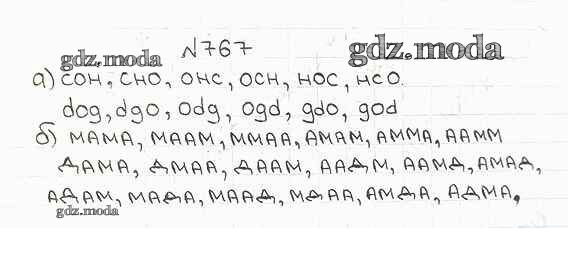 №767
gdz.moda gdz.moda
а) СОН, СНО, ОНС, ОСН, НОС, НСО
dog, dgo, odg, ogd, gdo, god
б) МАМА, МААМ, ММАА, АМАМ, АММА, ААММ
ДАМА, ДМАА, ДААМ, ААДМ, ААМД, АМАД,
АДАМ, МАДА, МААД, МДАА, АМДА, АДМА,
gdz.moda